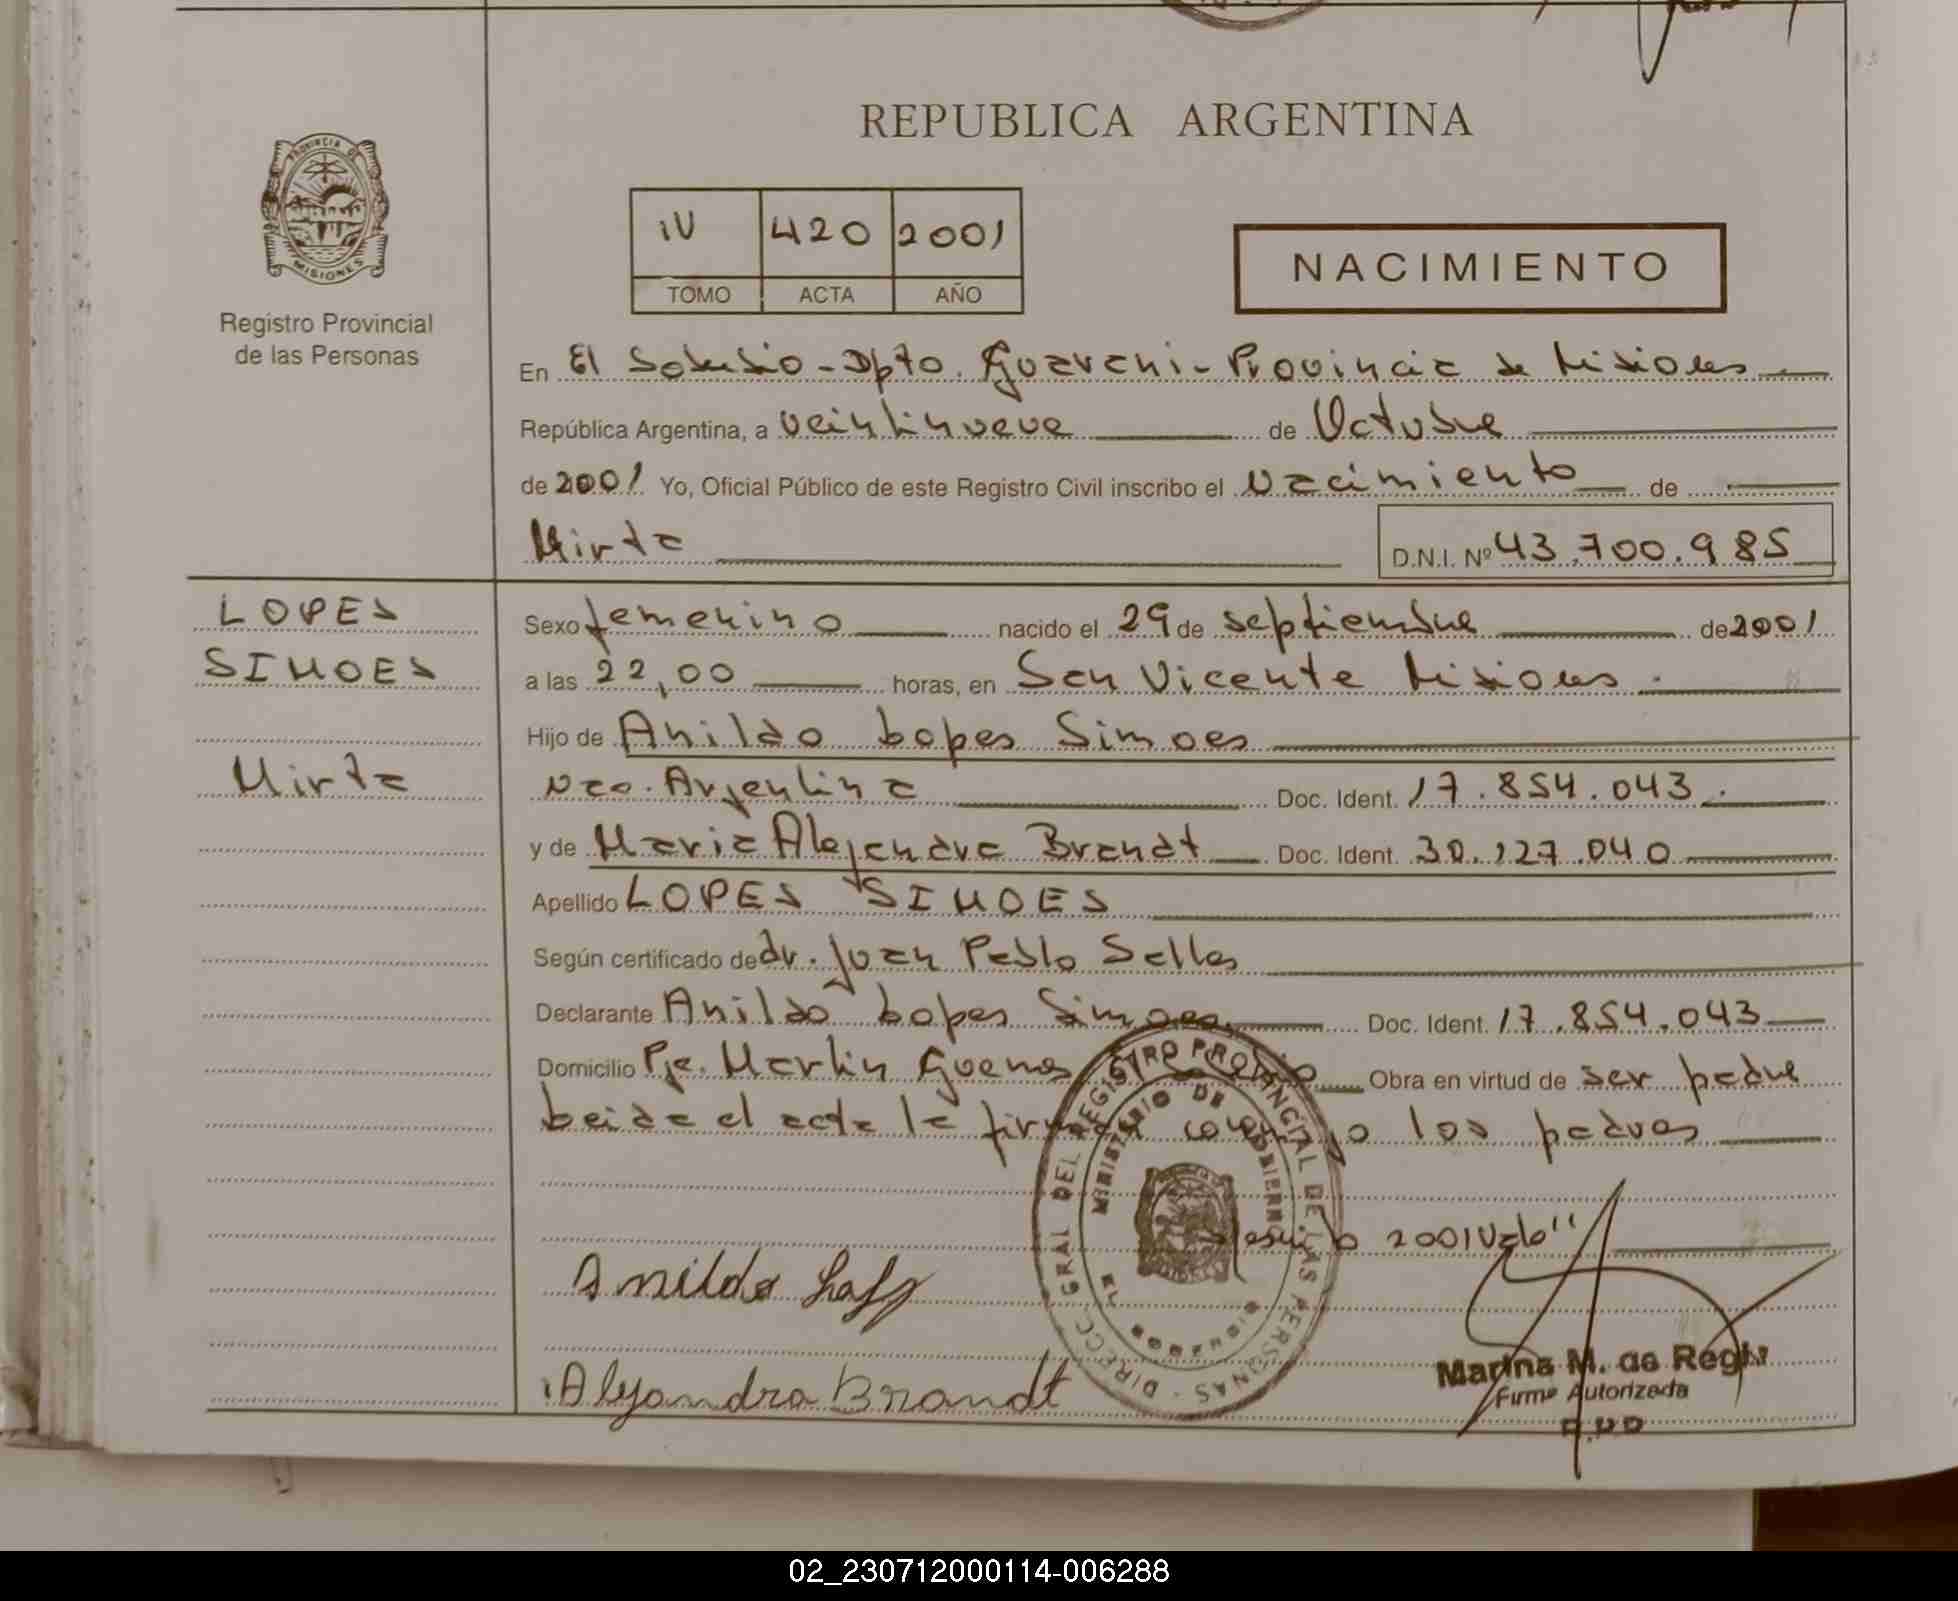 REPUBLICA ARGENTINA
PROVINCIA DE
MISIONES
Registro Provincial
de las Personas
IV 420 2001
TOMO ACTA AÑO
NACIMIENTO
En El Soberbio - Dpto. Guarani - Provincia de Misiones
República Argentina, a veintinueve de Octubre
de 2001 Yo, Oficial Público de este Registro Civil inscribo el nacimiento de
Mirta D.N.I. Nº 43.700.985
LOPES
SIMOES
Mirta
Sexo femenino nacido el 29 de septiembre de 2001
a las 22,00 horas, en San Vicente Misiones.
Hijo de Anildo Lopes Simoes
Nac. Argentina Doc. Ident. 17.854.043
y de Maria Alejandra Brandt Doc. Ident. 30.127.040
Apellido LOPES SIMOES
Según certificado de dr. Juan Pablo Selles
Declarante Anildo Lopes Simoes Doc. Ident. 17.854.043
Domicilio Pje. Martin Guemes Obra en virtud de ser padre
Leida el acta la firman conmigo los padres
2001 Vale"
DIRECC. GRAL DEL REGISTRO PROVINCIAL DE LAS PERSONAS
MINISTERIO DE GOBIERNO
MISIONES
Anildo
Alejandra Brandt
Marina M. de
Firma Autorizada
02_230712000114-006288